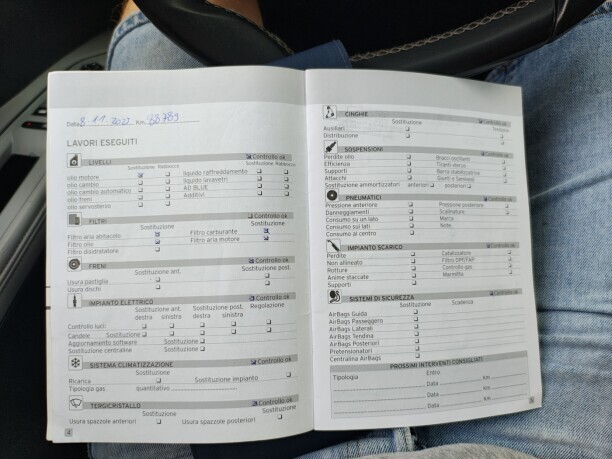 Data 8-11-2022 Km. 88789
LAVORI ESEGUITI
LIVELLI Controllo ok
Sostituzione Rabbocco Sostituzione Rabbocco
olio motore liquido raffreddamento
olio cambio liquido lavavetri
olio cambio automatico AD BLUE
olio freni Additivi
olio servosterzo
FILTRI Controllo ok
Filtro aria abitacolo Filtro carburante
Filtro olio Filtro aria motore
Filtro disidratatore
FRENI Controllo ok
Sostituzione ant. Sostituzione post.
Usura pastiglia
Usura dischi
IMPIANTO ELETTRICO Controllo ok
Sostituzione ant. Sostituzione post. Regolazione
destra sinistra destra sinistra
Controllo luci
Candele Sostituzione
Aggiornamento software Sostituzione
Sostituzione centralina Sostituzione
SISTEMA CLIMATIZZAZIONE Controllo ok
Ricarica Sostituzione impianto
Tipologia gas quantitativo
TERGICRISTALLO Controllo ok
Sostituzione Sostituzione
Usura spazzole anteriori Usura spazzole posteriori
4
CINGHIE Controllo ok
Sostituzione
Ausiliari
Distribuzione
SOSPENSIONI Controllo ok
Perdite olio Bracci oscillanti
Efficienza Tiranti sterzo
Supporti Barra stabilizzatrice
Attacchi Giunti e Semiassi
Sostituzione ammortizzatori anteriori posteriori
PNEUMATICI Controllo ok
Pressione anteriore Pressione posteriore
Danneggiamenti Scolpitura
Consumo su un lato Marca
Consumo sui lati Note
Consumo al centro
IMPIANTO SCARICO Controllo ok
Perdite Catalizzatore
Non allineato Filtro DPF/FAP
Rotture Controllo gas
Anime staccate Marmitta
Supporti
SISTEMI DI SICUREZZA Controllo ok
Sostituzione Scadenza
AirBags Guida
AirBags Passeggero
AirBags Laterali
AirBags Tendina
AirBags Posteriori
Pretensionatori
Centralina AirBags
PROSSIMI INTERVENTI CONSIGLIATI
Tipologia Entro
Data km
Data km
Data km
Data km
5